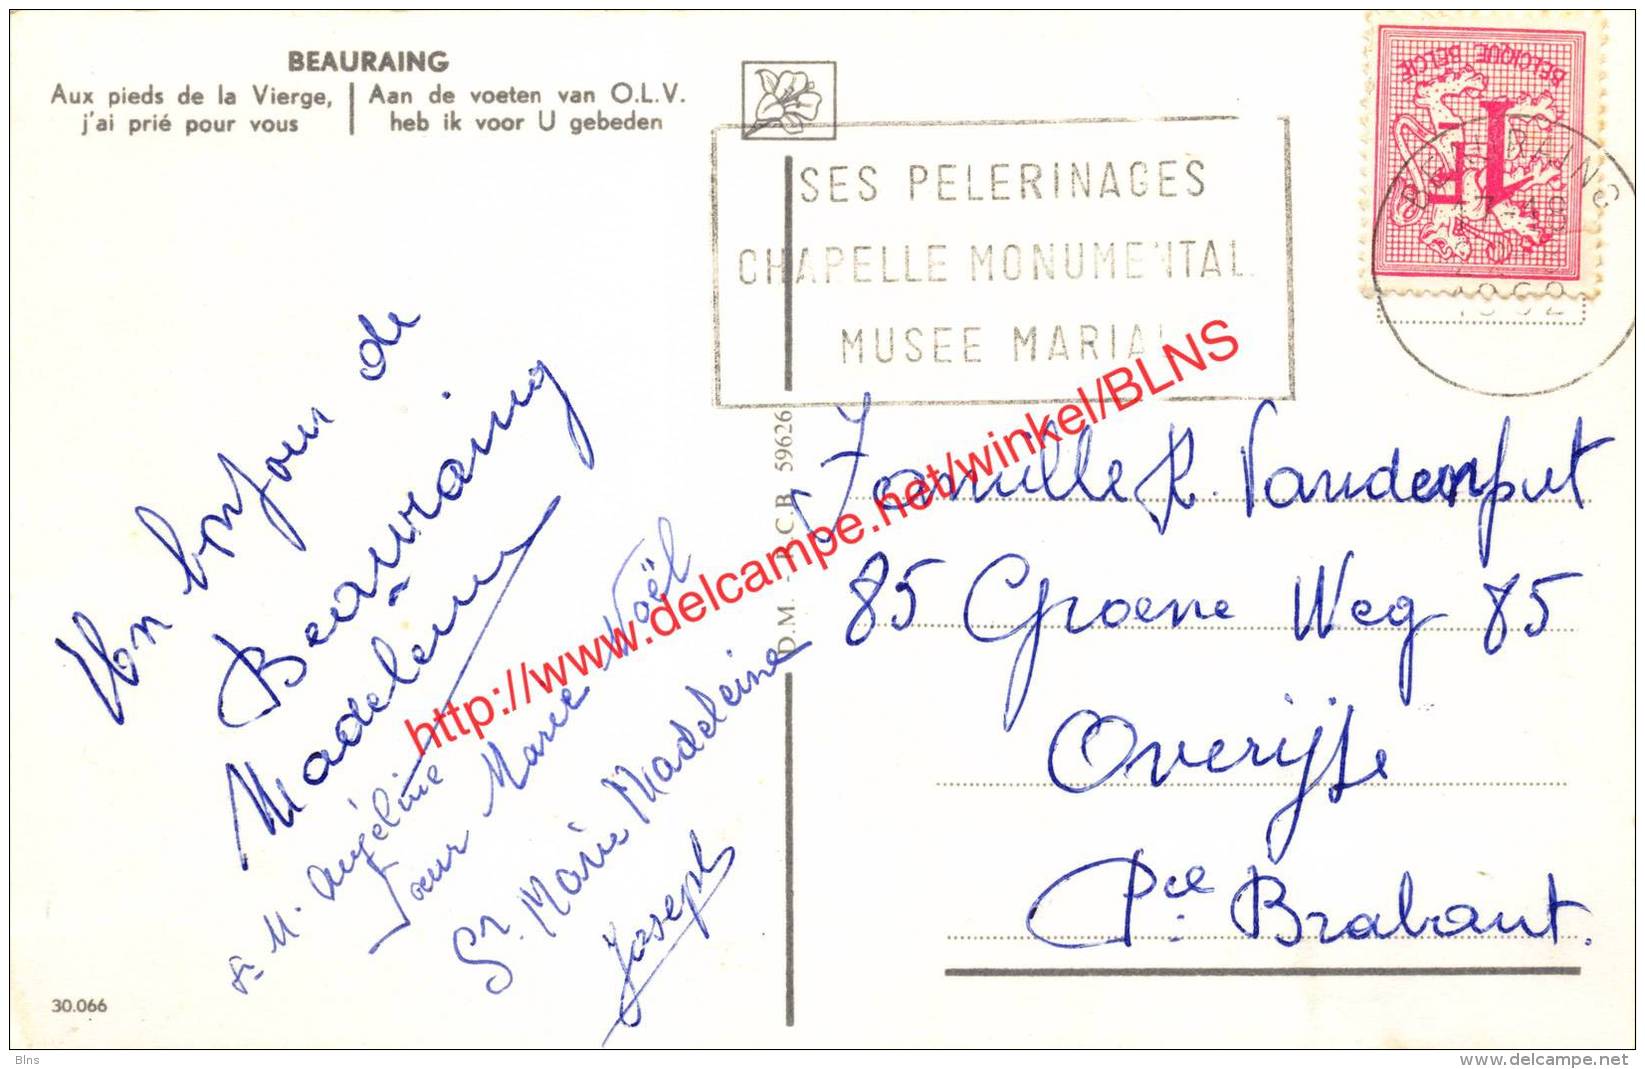 BEAURAING
Aux pieds de la Vierge,
j'ai prié pour vous
Aan de voeten van O.L.V.
heb ik voor U gebeden
SES PELERINAGES
CHAPELLE MONUMENTAL
MUSEE MARIAL
BELGIQUE BELGIË
1F
17-18
1962
Un bonjour de
Beauraing
Madeleine
Sr. M. Angéline
Soeur Marie Noël
Sr. Marie Madeleine
Joseph
Famille R. Vandenput
85 Groene Weg 85
Overijse
Pce Brabant.
D.M. - P.C.B. 59626
30.066
http://www.delcampe.net/winkel/BLNS
Blns
http://www.delcampe.net